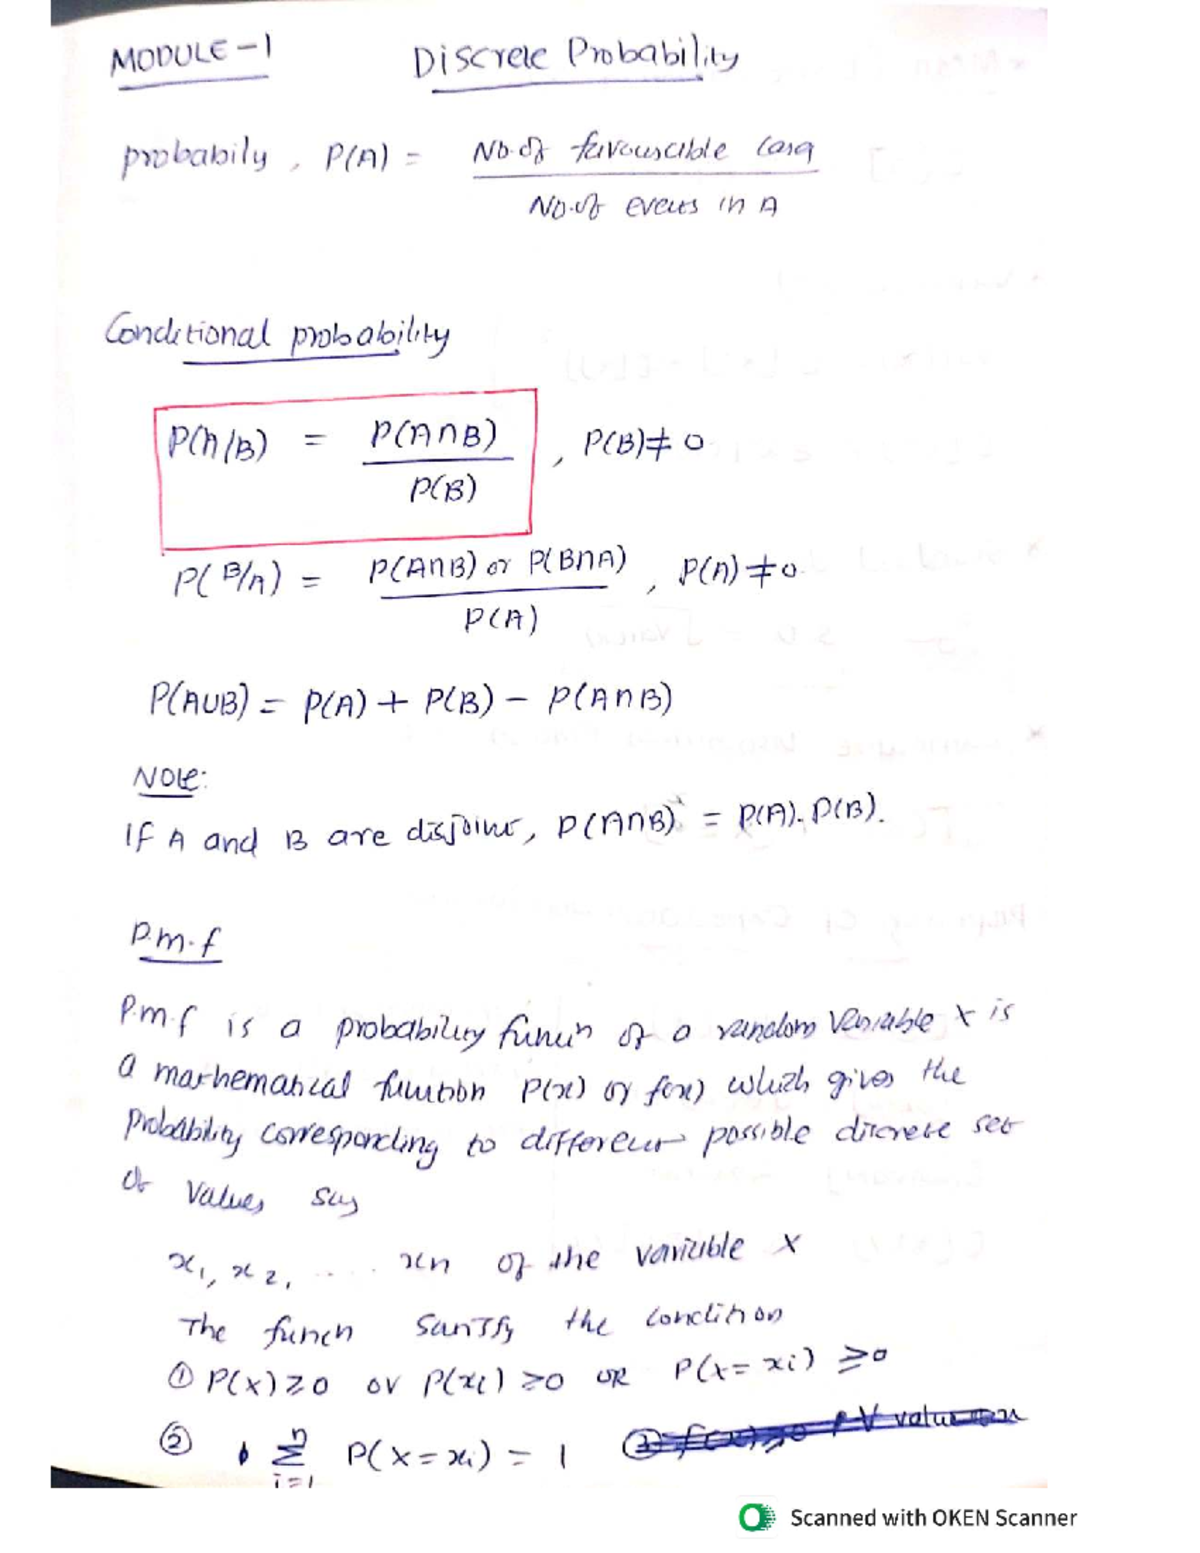 MODULE-1 Discrete Probability
probabily, P(A) = No.of favourable cases
No.of events in A
Conditional probability
P(A/B) = P(A∩B) , P(B)≠0
P(B)
P(B/A) = P(A∩B) or P(B∩A) , P(A)≠0
P(A)
P(A∪B) = P(A) + P(B) - P(A∩B)
Note:
If A and B are disjoint, P(A∩B) = P(A).P(B).
P.m.f
P.m.f is a probability funcn of a random variable X is
a mathematical function P(x) or f(x) which gives the
probability corresponding to different possible discrete set
of values say
x1, x2, ..... xn of the variable X
The funcn satisfy the condition
① P(x)≥0 or P(xi)≥0 OR P(x=xi)≥0
② n∑i=1 P(X=xi) = 1
Scanned with OKEN Scanner